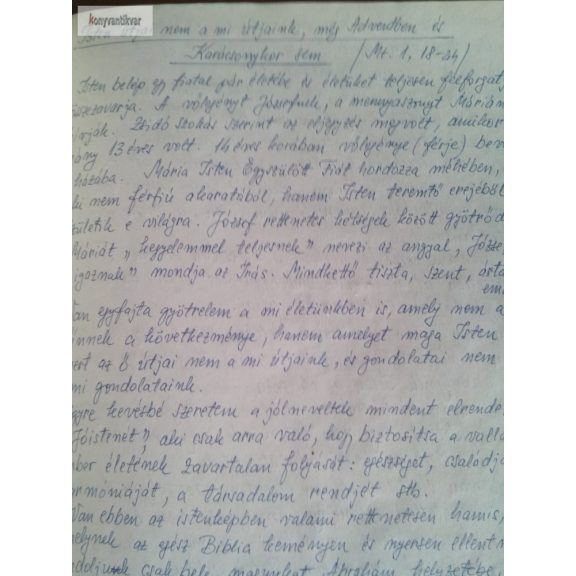 konyvantikvar
Isten útjai nem a mi útjaink, még Adventben és
Karácsonykor sem /Mt. 1, 18-24/
Isten belép egy fiatal pár életébe és életüket teljesen felforgat
összezavarja. A vőlegényt Józsefnek, a mennyasszonyt Márián
hívják. Zsidó szokás szerint az eljegyzés megvolt, amikor
ány 13 éves volt. 14 éves korában vőlegénye (férje) bev
házába. Mária Isten Egyszülött Fiát hordozza méhében,
ki nem férfiú akaratából, hanem Isten teremtő erejéből
születik e világra. József rettenetes kétségek között gyötrőd
Máriát "kegyelemmel teljesnek" nevezi az angyal, Józse
igaznak" mondja az Írás. Mindkettő tiszta, szent, árta
em
Van egyfajta gyötrelem a mi életünkben is, amely nem a
űnnek a következménye, hanem amelyet maga Isten
mert az Ő útjai nem a mi útjaink, és gondolatai nem
mi gondolataink.
Egyre kevésbé szeretem a jólneveltek mindent elrende
Jóistenét", aki csak arra való, hogy biztosítsa a vallá
ber életének zavartalan folyását: egészségét, családja
armóniáját, a társadalom rendjét stb.
Van ebben az istenképben valami rettenetesen hamis,
melynek az egész Biblia keményen és nyersen ellent
csak bele magunkat Ábrahám helyzetébe,